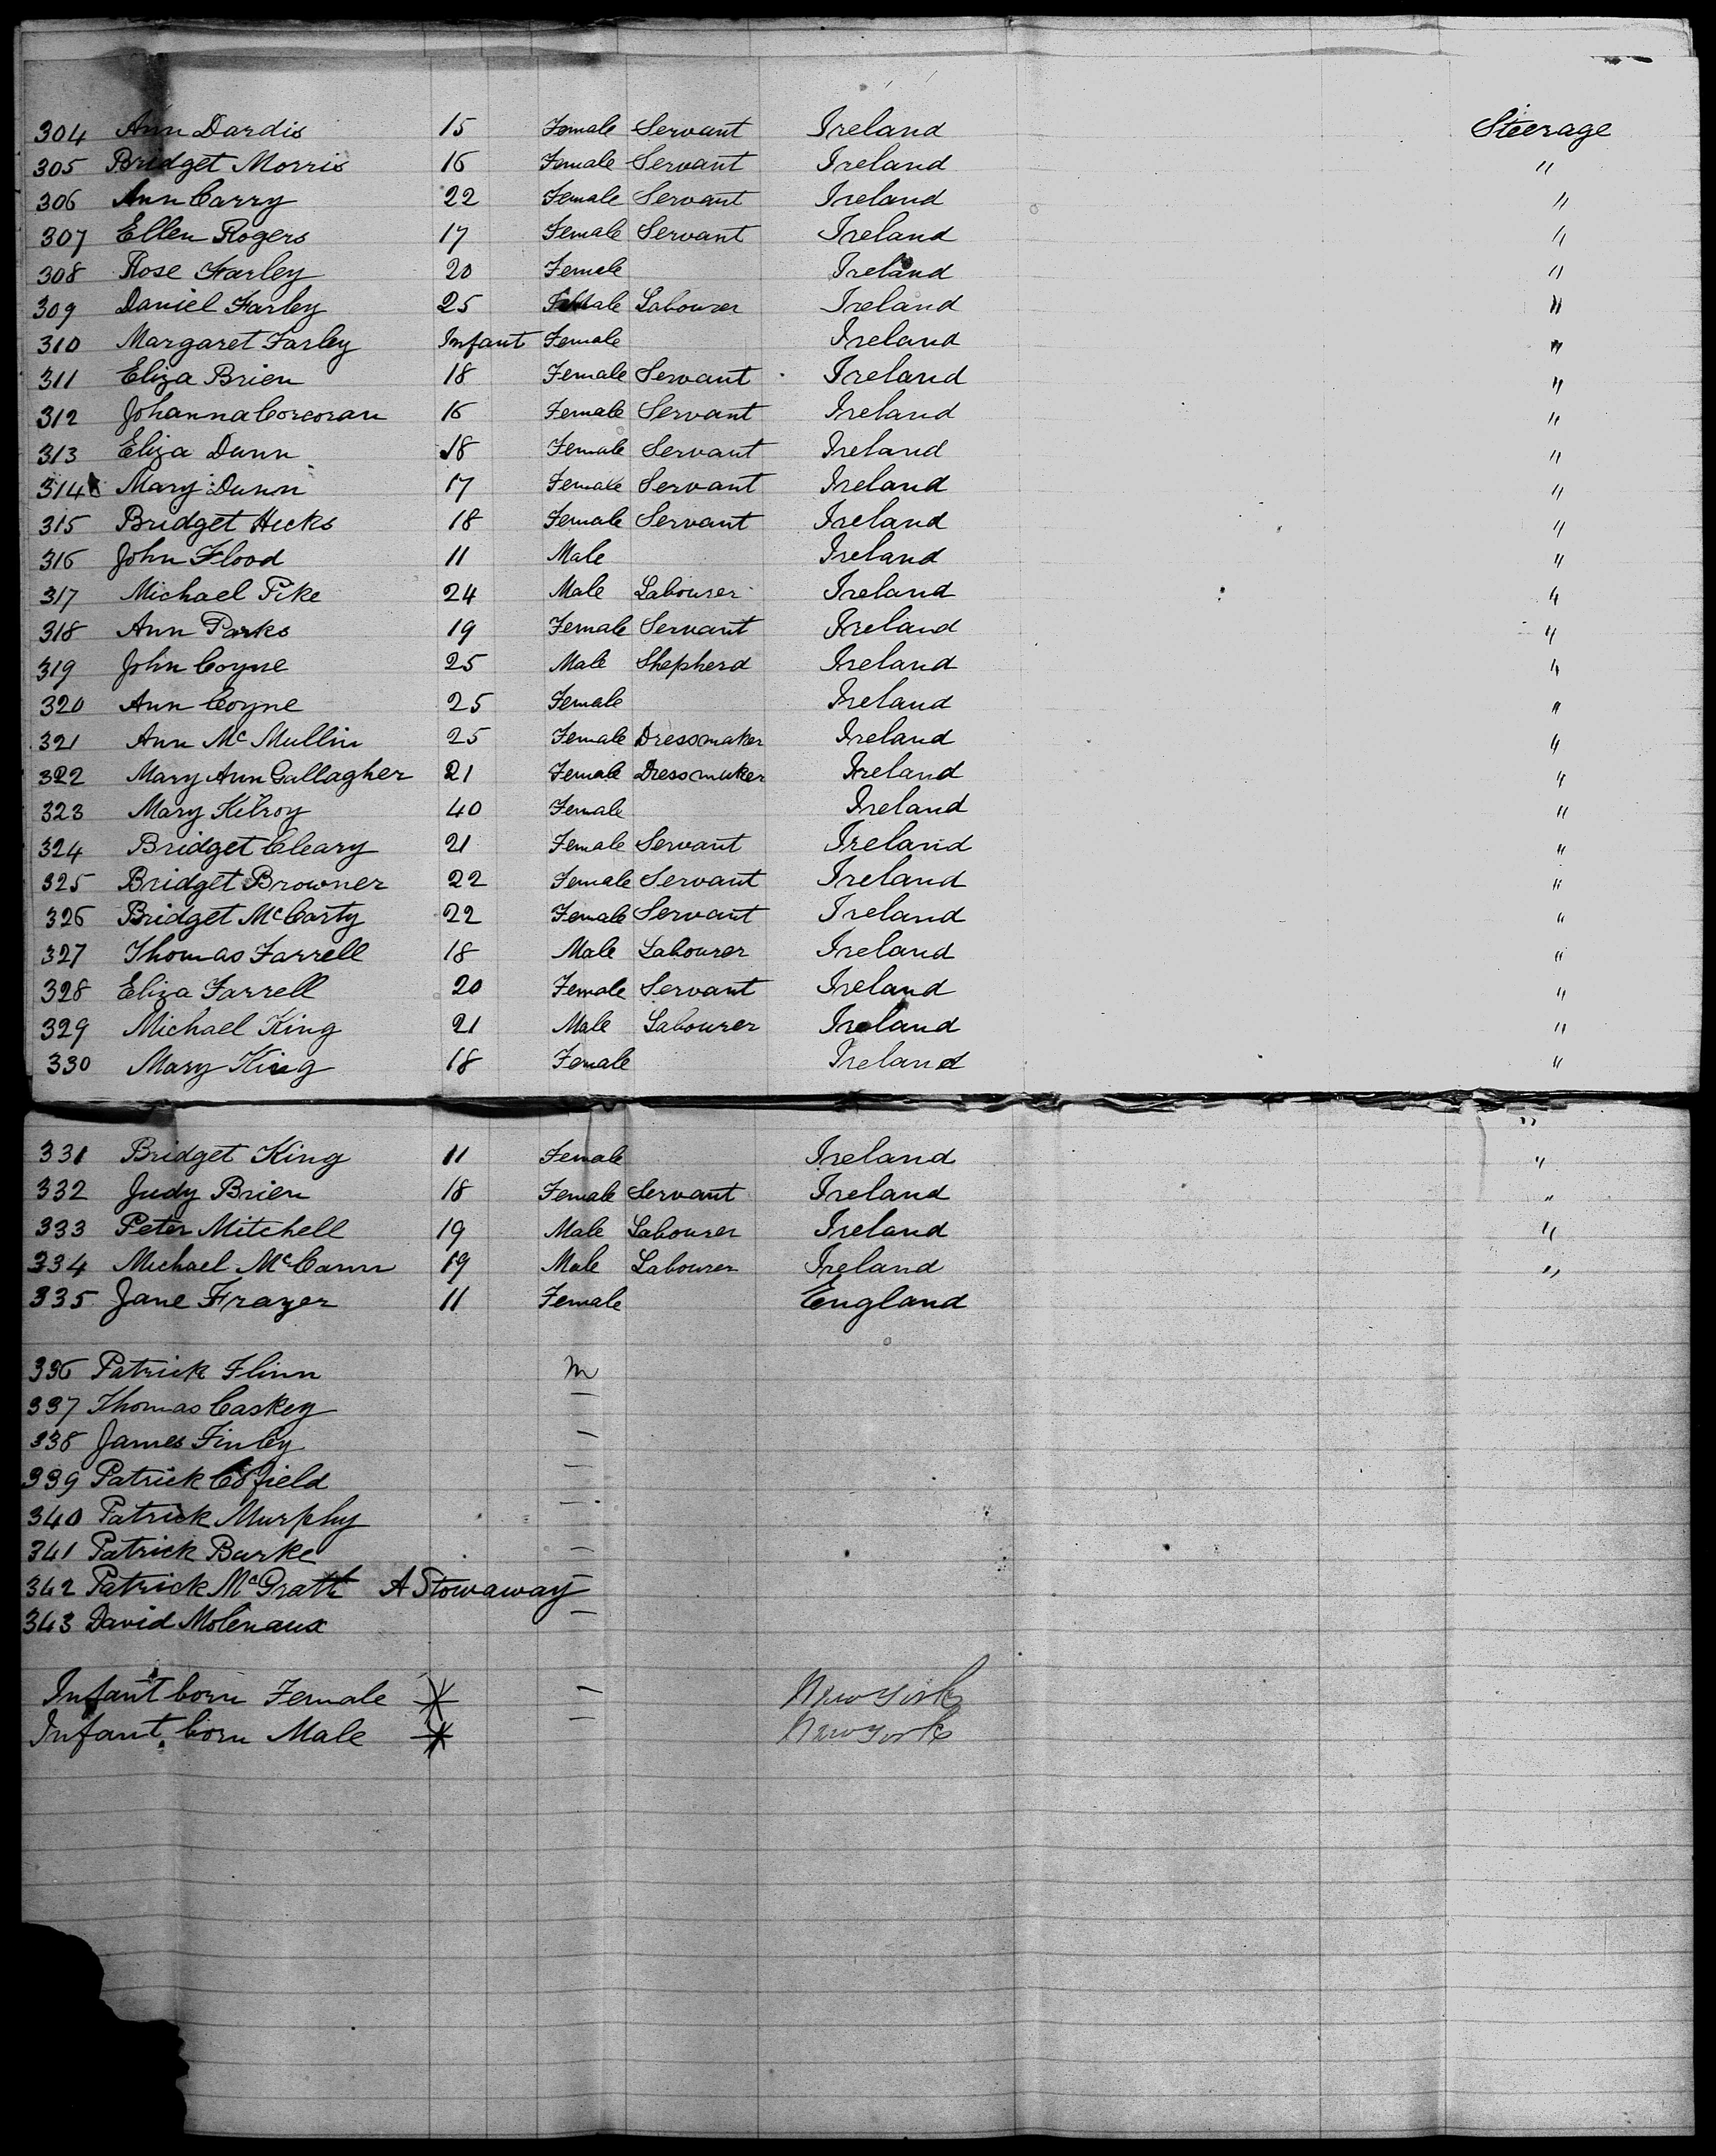 304 Ann Dardis 15 Female Servant Ireland Steerage
305 Bridget Morris 16 Female Servant Ireland "
306 Ann Carry 22 Female Servant Ireland "
307 Ellen Rogers 17 Female Servant Ireland "
308 Rose Farley 20 Female Ireland "
309 Daniel Farley 25 Male Labourer Ireland "
310 Margaret Farley Infant Female Ireland "
311 Eliza Brien 18 Female Servant Ireland "
312 Johanna Corcoran 16 Female Servant Ireland "
313 Eliza Dunn 18 Female Servant Ireland "
314 Mary Dunn 17 Female Servant Ireland "
315 Bridget Hicks 18 Female Servant Ireland "
316 John Flood 11 Male Ireland "
317 Michael Pike 24 Male Labourer Ireland "
318 Ann Parks 19 Female Servant Ireland "
319 John Coyne 25 Male Shepherd Ireland "
320 Ann Coyne 25 Female Ireland "
321 Ann Mc Mullin 25 Female Dressmaker Ireland "
322 Mary Ann Gallagher 21 Female Dressmaker Ireland "
323 Mary Kilroy 40 Female Ireland "
324 Bridget Cleary 21 Female Servant Ireland "
325 Bridget Browner 22 Female Servant Ireland "
326 Bridget McCarty 22 Female Servant Ireland "
327 Thomas Farrell 18 Male Labourer Ireland "
328 Eliza Farrell 20 Female Servant Ireland "
329 Michael King 21 Male Labourer Ireland "
330 Mary King 18 Female Ireland "
"
331 Bridget King 11 Female Ireland "
332 Judy Brien 18 Female Servant Ireland "
333 Peter Mitchell 19 Male Labourer Ireland "
334 Michael McCann 19 Male Labourer Ireland "
335 Jane Frazer 11 Female England
336 Patrick Flinn M
337 Thomas Caskey —
338 James Finley —
339 Patrick Cofield —
340 Patrick Murphy —
341 Patrick Burke —
342 Patrick McGrath A Stowaway —
343 David Molenaux —
Infant born Female * — New York
Infant born Male * — New York